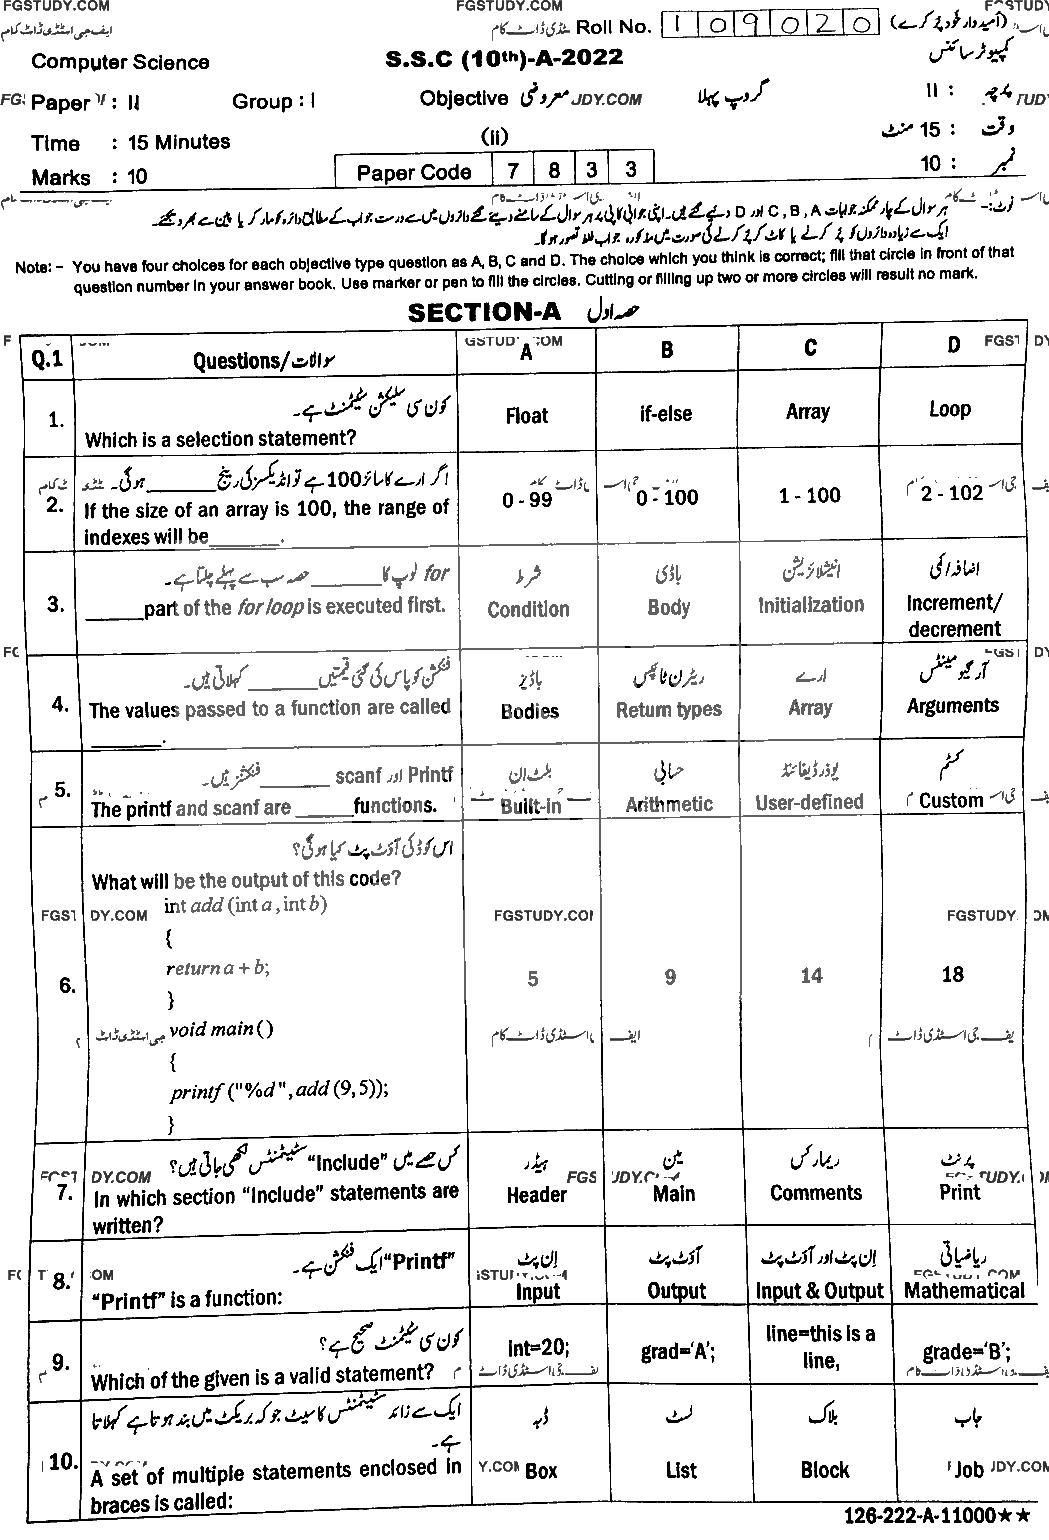 FGSTUDY.COM FGSTUDY.COM
ایف جی اسٹڈی ڈاٹ کام
Roll No. 1 0 9 0 2 0 (امیدوار خود پُر کرے)
Computer Science S.S.C (10th)-A-2022 کمپیوٹر سائنس
Paper : II Group : I Objective معروضی گروپ پہلا پرچہ : II
Time : 15 Minutes (ii) وقت : 15 منٹ
Marks : 10 Paper Code 7 8 3 3 نمبر : 10
نوٹ:- ہر سوال کے چار ممکنہ جوابات A ، B ، C اور D دیئے گئے ہیں۔ اپنی جوابی کاپی پر ہر سوال کے سامنے دیئے گئے دائروں میں سے درست جواب کے مطابق دائرہ کو مارکر یا پین سے بھر دیجئے۔
ایک سے زیادہ دائروں کو پُر کرنے یا کاٹ کر پُر کرنے کی صورت میں مذکورہ جواب غلط تصور ہو گا۔
Note: - You have four choices for each objective type question as A, B, C and D. The choice which you think is correct; fill that circle in front of that
question number in your answer book. Use marker or pen to fill the circles. Cutting or filling up two or more circles will result no mark.
SECTION-A حصہ اول
Q.1 Questions/سوالات A B C D
کون سی سلیکشن سٹیٹمنٹ ہے۔
1. Which is a selection statement? Float if-else Array Loop
اگر ارے کا سائز 100 ہے تو انڈیکسز کی رینج ______ ہوگی۔
2. If the size of an array is 100, the range of
indexes will be______. 0 - 99 0 - 100 1 - 100 2 - 102
for لوپ کا ______ حصہ سب سے پہلے چلتا ہے۔ شرط باڈی انیشلائزیشن اضافہ/کمی
3. _____part of the for loop is executed first. Condition Body Initialization Increment/
decrement
فنکشن کو پاس کی گئی قیمتیں ______ کہلاتی ہیں۔ باڈیز ریٹرن ٹائپس ارے آرگیومینٹس
4. The values passed to a function are called
______. Bodies Return types Array Arguments
Printf اور scanf ______ فنکشنز ہیں۔ بلٹ ان حسابی یوزر ڈیفائنڈ کسٹم
5. The printf and scanf are _____functions. Built-in Arithmetic User-defined Custom
اس کوڈ کی آؤٹ پٹ کیا ہوگی؟
What will be the output of this code?
int add (int a , int b)
FGSTUDY.COM FGSTUDY.COM
{
return a + b;
6. 5 9 14 18
}
void main ()
{
printf ("%d" , add (9, 5));
}
کس حصے میں "Include" سٹیٹمنٹس لکھی جاتی ہیں؟ ہیڈر مین ریمارکس پرنٹ
7. In which section "Include" statements are
written? Header Main Comments Print
"Printf" ایک فنکشن ہے۔ ان پٹ آؤٹ پٹ ان پٹ اور آؤٹ پٹ ریاضیاتی
8. "Printf" is a function: Input Output Input & Output Mathematical
کون سی سٹیٹمنٹ صحیح ہے؟
9. Which of the given is a valid statement? Int=20; grad='A'; line=this is a
line, grade='B';
ایک سے زائد سٹیٹمنٹس کا سیٹ جو کہ بریکٹ میں بند ہوتا ہے کہلاتا
ہے۔ ڈبہ لسٹ بلاک جاب
10. A set of multiple statements enclosed in
braces is called: Box List Block Job
126-222-A-11000★★